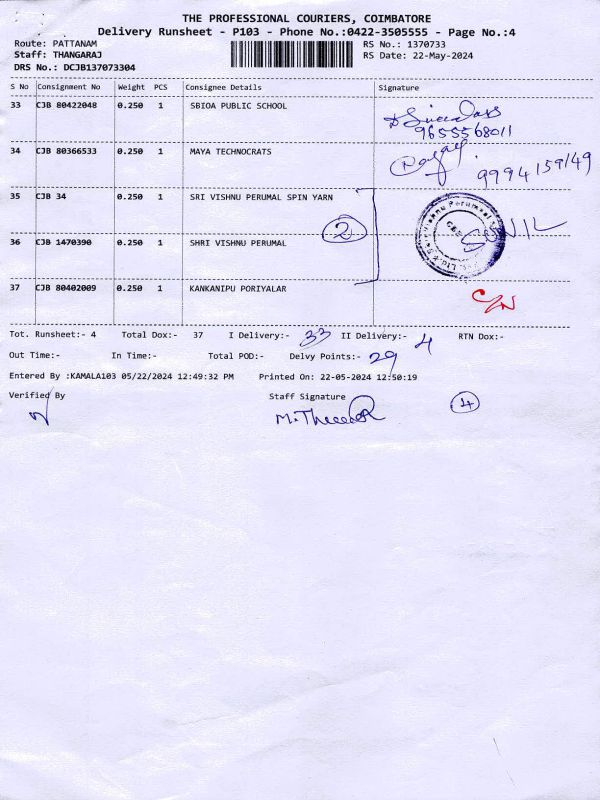 THE PROFESSIONAL COURIERS, COIMBATORE
Delivery Runsheet - P103 - Phone No.:0422-3505555 - Page No.:4
Route: PATTANAM RS No.: 1370733
Staff: THANGARAJ RS Date: 22-May-2024
DRS No.: DCJB137073304
S No Consignment No Weight PCS Consignee Details Signature
33 CJB 80422048 0.250 1 SBIOA PUBLIC SCHOOL
9655568011
34 CJB 80366533 0.250 1 MAYA TECHNOCRATS
9994159149
35 CJB 34 0.250 1 SRI VISHNU PERUMAL SPIN YARN
2
36 CJB 1470390 0.250 1 SHRI VISHNU PERUMAL
37 CJB 80402009 0.250 1 KANKANIPU PORIYALAR
Tot. Runsheet:- 4 Total Dox:- 37 I Delivery:- 33 II Delivery:- 4 RTN Dox:-
Out Time:- In Time:- Total POD:- Delvy Points:- 29
Entered By :KAMALA103 05/22/2024 12:49:32 PM Printed On: 22-05-2024 12:50:19
Verified By Staff Signature 4